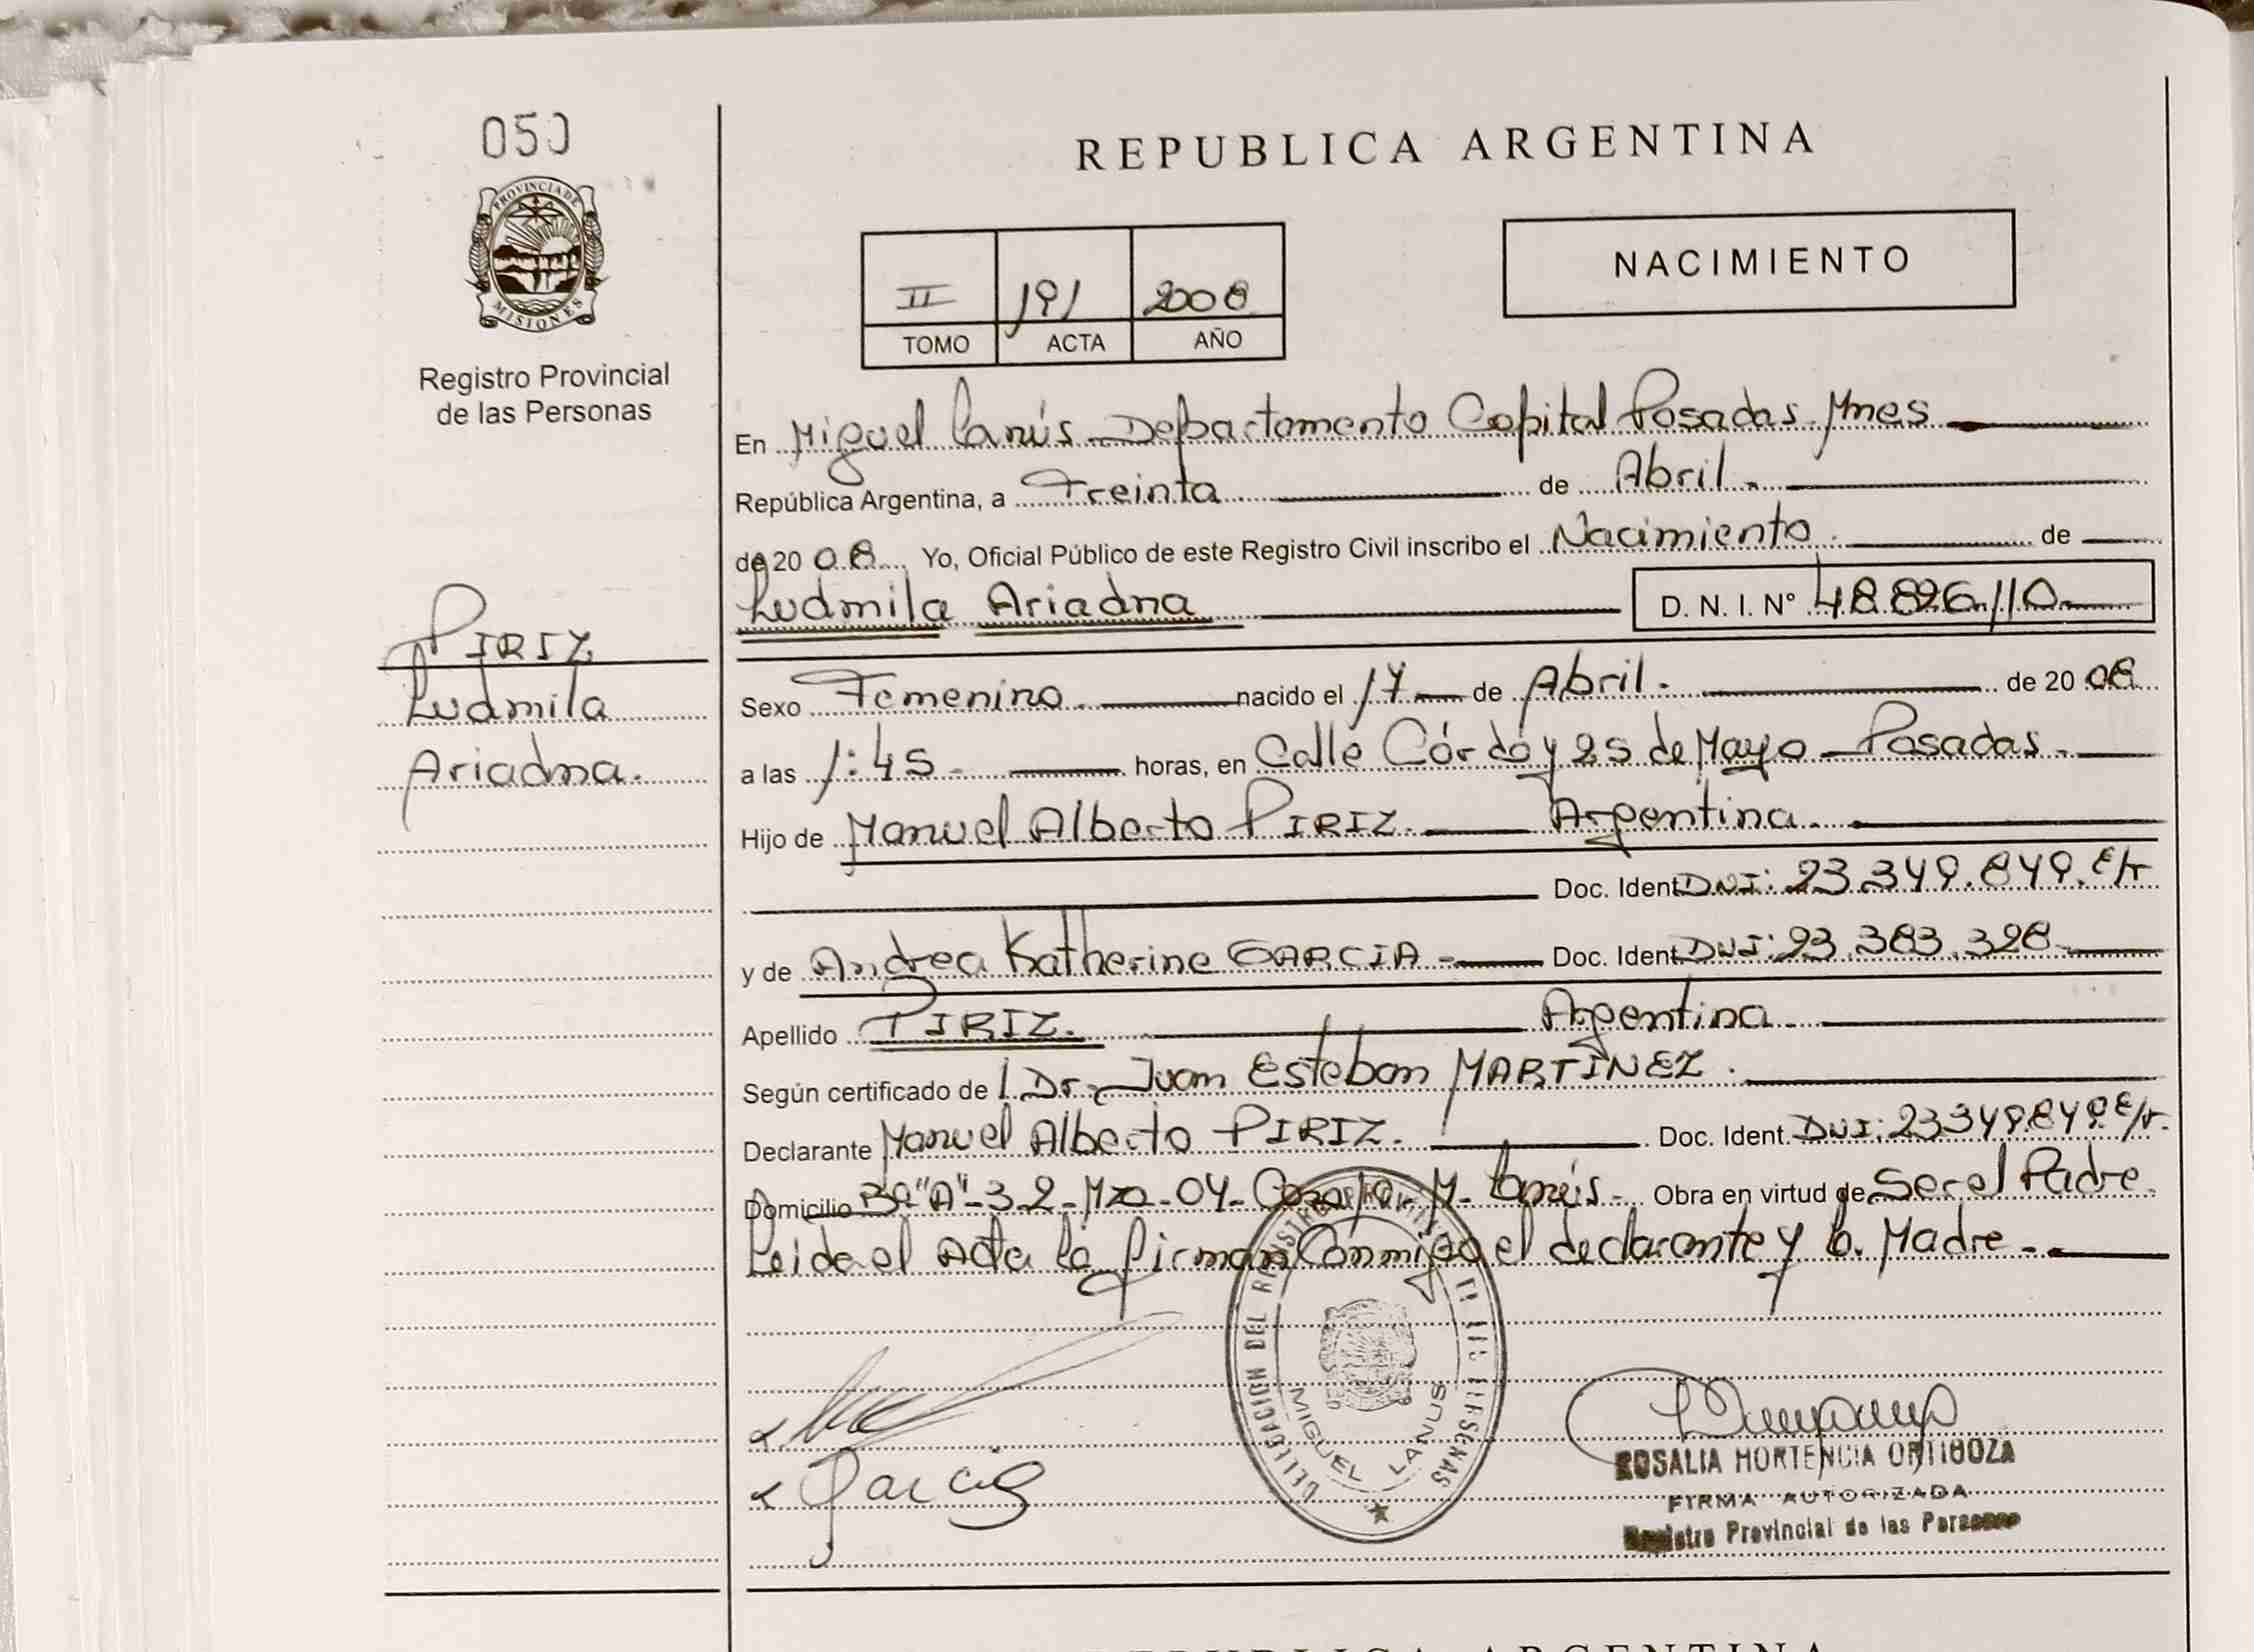 050
PROVINCIA DE
MISIONES
Registro Provincial
de las Personas
PIRIZ
Ludmila
Ariadna.
REPUBLICA ARGENTINA
II 191 2008
TOMO ACTA AÑO
NACIMIENTO
En Miguel Lanús Departamento Capital Posadas. Mnes
República Argentina, a Treinta de Abril.
de 20 08. Yo, Oficial Público de este Registro Civil inscribo el Nacimiento de
Ludmila Ariadna D. N. I. Nº 48.896.110
Sexo Femenino. nacido el 17 de Abril. de 20 08
a las 1:45. horas, en Calle Córdo y 25 de Mayo - Posadas.
Hijo de Manuel Alberto PIRIZ. Argentina.
Doc. Ident. DNI: 23.349.849. E/t
y de Andrea Katherine GARCIA - Doc. Ident. DNI: 23.383.328
Apellido PIRIZ. Argentina
Según certificado de l Dr. Juan Esteban MARTINEZ.
Declarante Manuel Alberto PIRIZ. Doc. Ident. DNI: 23349.849. E/t.
Domicilio Bº "A"-32-Mza-04- M. Lanús- Obra en virtud de Ser el Padre
Leida el Acta la firman Conmigo el declarante y la Madre -
DELEGACION DEL REGISTRO PROVINCIAL DE LAS PERSONAS
MIGUEL LANUS
Garcia
ROSALIA HORTENCIA ORTIGOZA
FIRMA AUTORIZADA
Registro Provincial de las Personas
REPUBLICA ARGENTINA